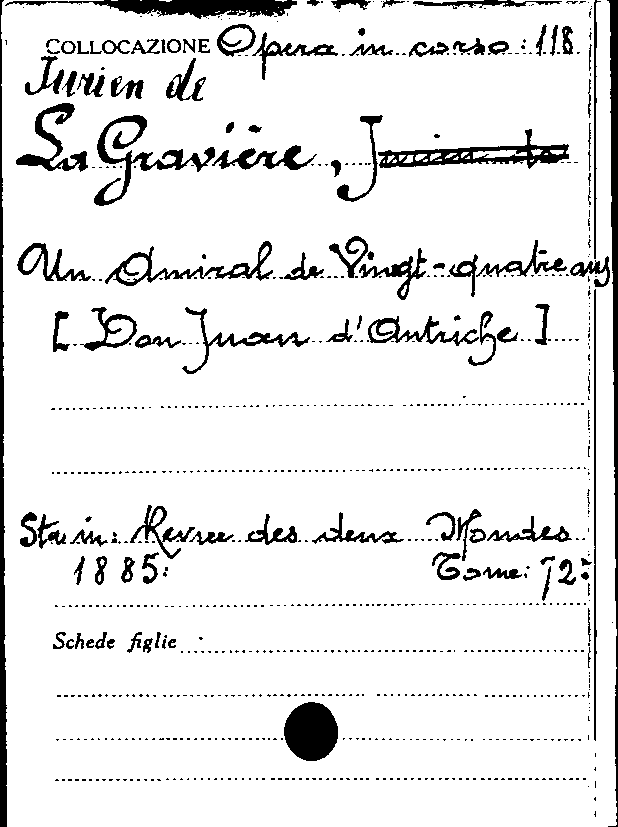 COLLOCAZIONE Opera in corso: 118
Jurien de
La Gravière, Jurien de
Un Amiral de Vingt-quatre ans
[ Don Juan d'Autriche ]
Sta in: Revue des deux Mondes
1885: Tome: 72:
Schede figlie